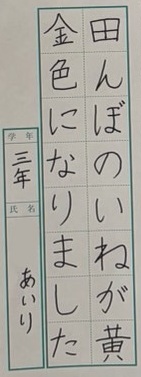 田んぼのいねが黄
金色になりました
学年
三年
氏名
あいり